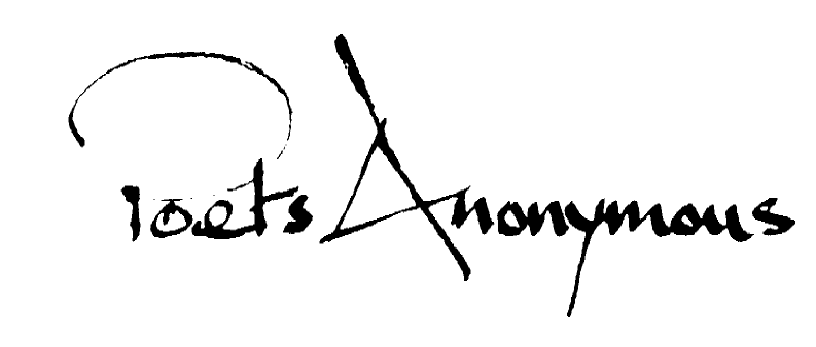 Poets Anonymous